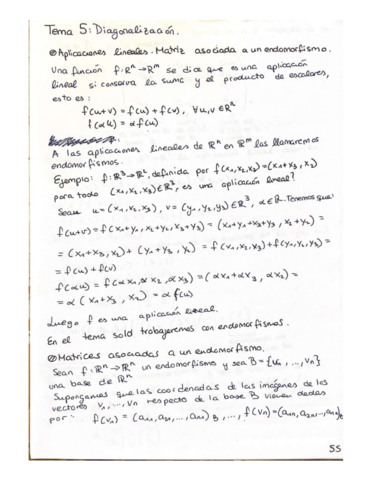 Tema 5: Diagonalización.
⊙ Aplicaciones lineales. Matriz asociada a un endomorfismo.
Una función f: ℝⁿ → ℝᵐ se dice que es una aplicación
lineal si conserva la suma y el producto de escalares,
esto es:
f(u+v) = f(u) + f(v), ∀u,v ∈ ℝⁿ
f(αu) = αf(u)
A las aplicaciones lineales de ℝⁿ en ℝᵐ las llamaremos
endomorfismos.
Ejemplo: f: ℝ³ → ℝ², definida por f(x₁,x₂,x₃) = (x₁+x₃, x₂)
para todo (x₁,x₂,x₃) ∈ ℝ³, es una aplicación lineal?
Sean u = (x₁,x₂,x₃), v = (y₁,y₂,y₃) ∈ ℝ³, α ∈ ℝ. Tenemos que:
f(u+v) = f(x₁+y₁, x₂+y₂, x₃+y₃) = (x₁+y₁+x₃+y₃, x₂+y₂) =
= (x₁+x₃, x₂) + (y₁+y₃, y₂) = f(x₁,x₂,x₃) + f(y₁,y₂,y₃) =
= f(u) + f(v)
f(αu) = f(αx₁, αx₂, αx₃) = (αx₁+αx₃, αx₂) =
= α(x₁+x₃, x₂) = αf(u)
Luego f es una aplicación lineal.
En el tema solo trabajaremos con endomorfismos.
⊙ Matrices asociadas a un endomorfismo.
Sean f: ℝⁿ → ℝⁿ un endomorfismo y sea B = {v₁, ..., vₙ}
una base de ℝⁿ
Supongamos que las coordenadas de las imágenes de los
vectores v₁, ..., vₙ respecto de la base B vienen dadas
por: f(v₁) = (a₁₁, a₂₁, ..., aₙ₁)B, ..., f(vₙ) = (a₁ₙ, a₂ₙ, ..., aₙₙ)B
55